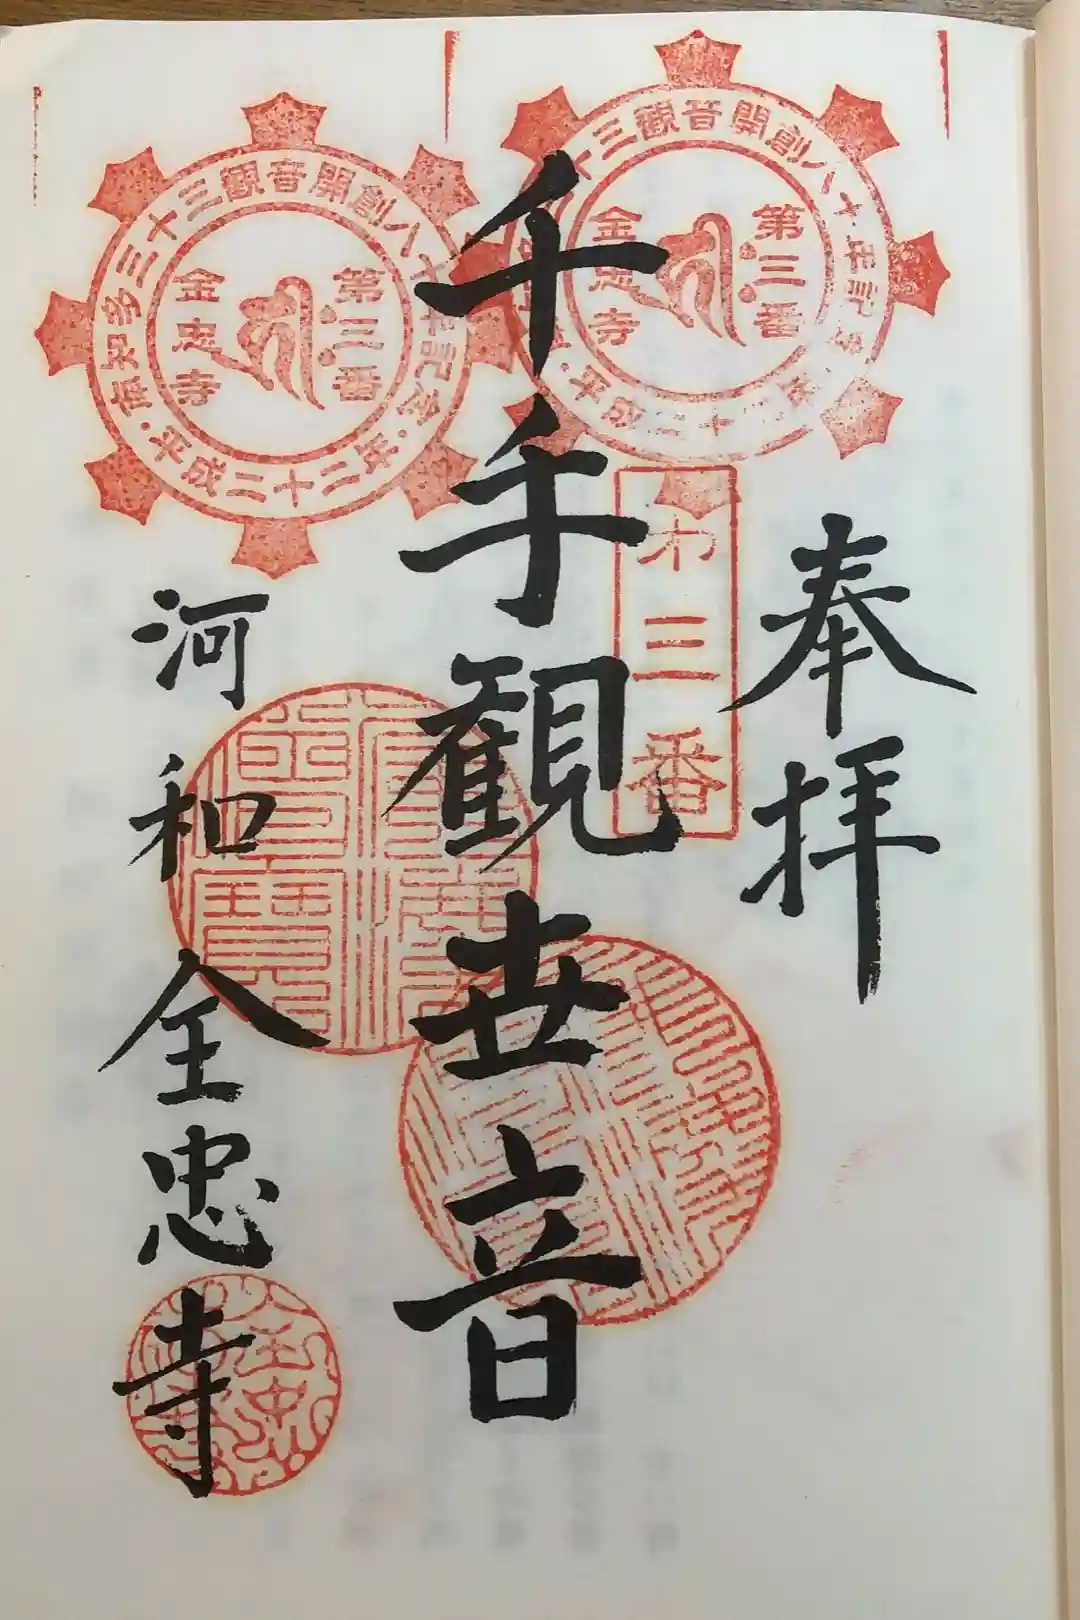 奉拝
第三番
十三觀音開創八十年記念・平成二十二年・
第三番
全忠寺
千手観世音
南知多三十三觀音開創八十年記念・平成二十二年・
第三番
全忠寺
河和全忠寺